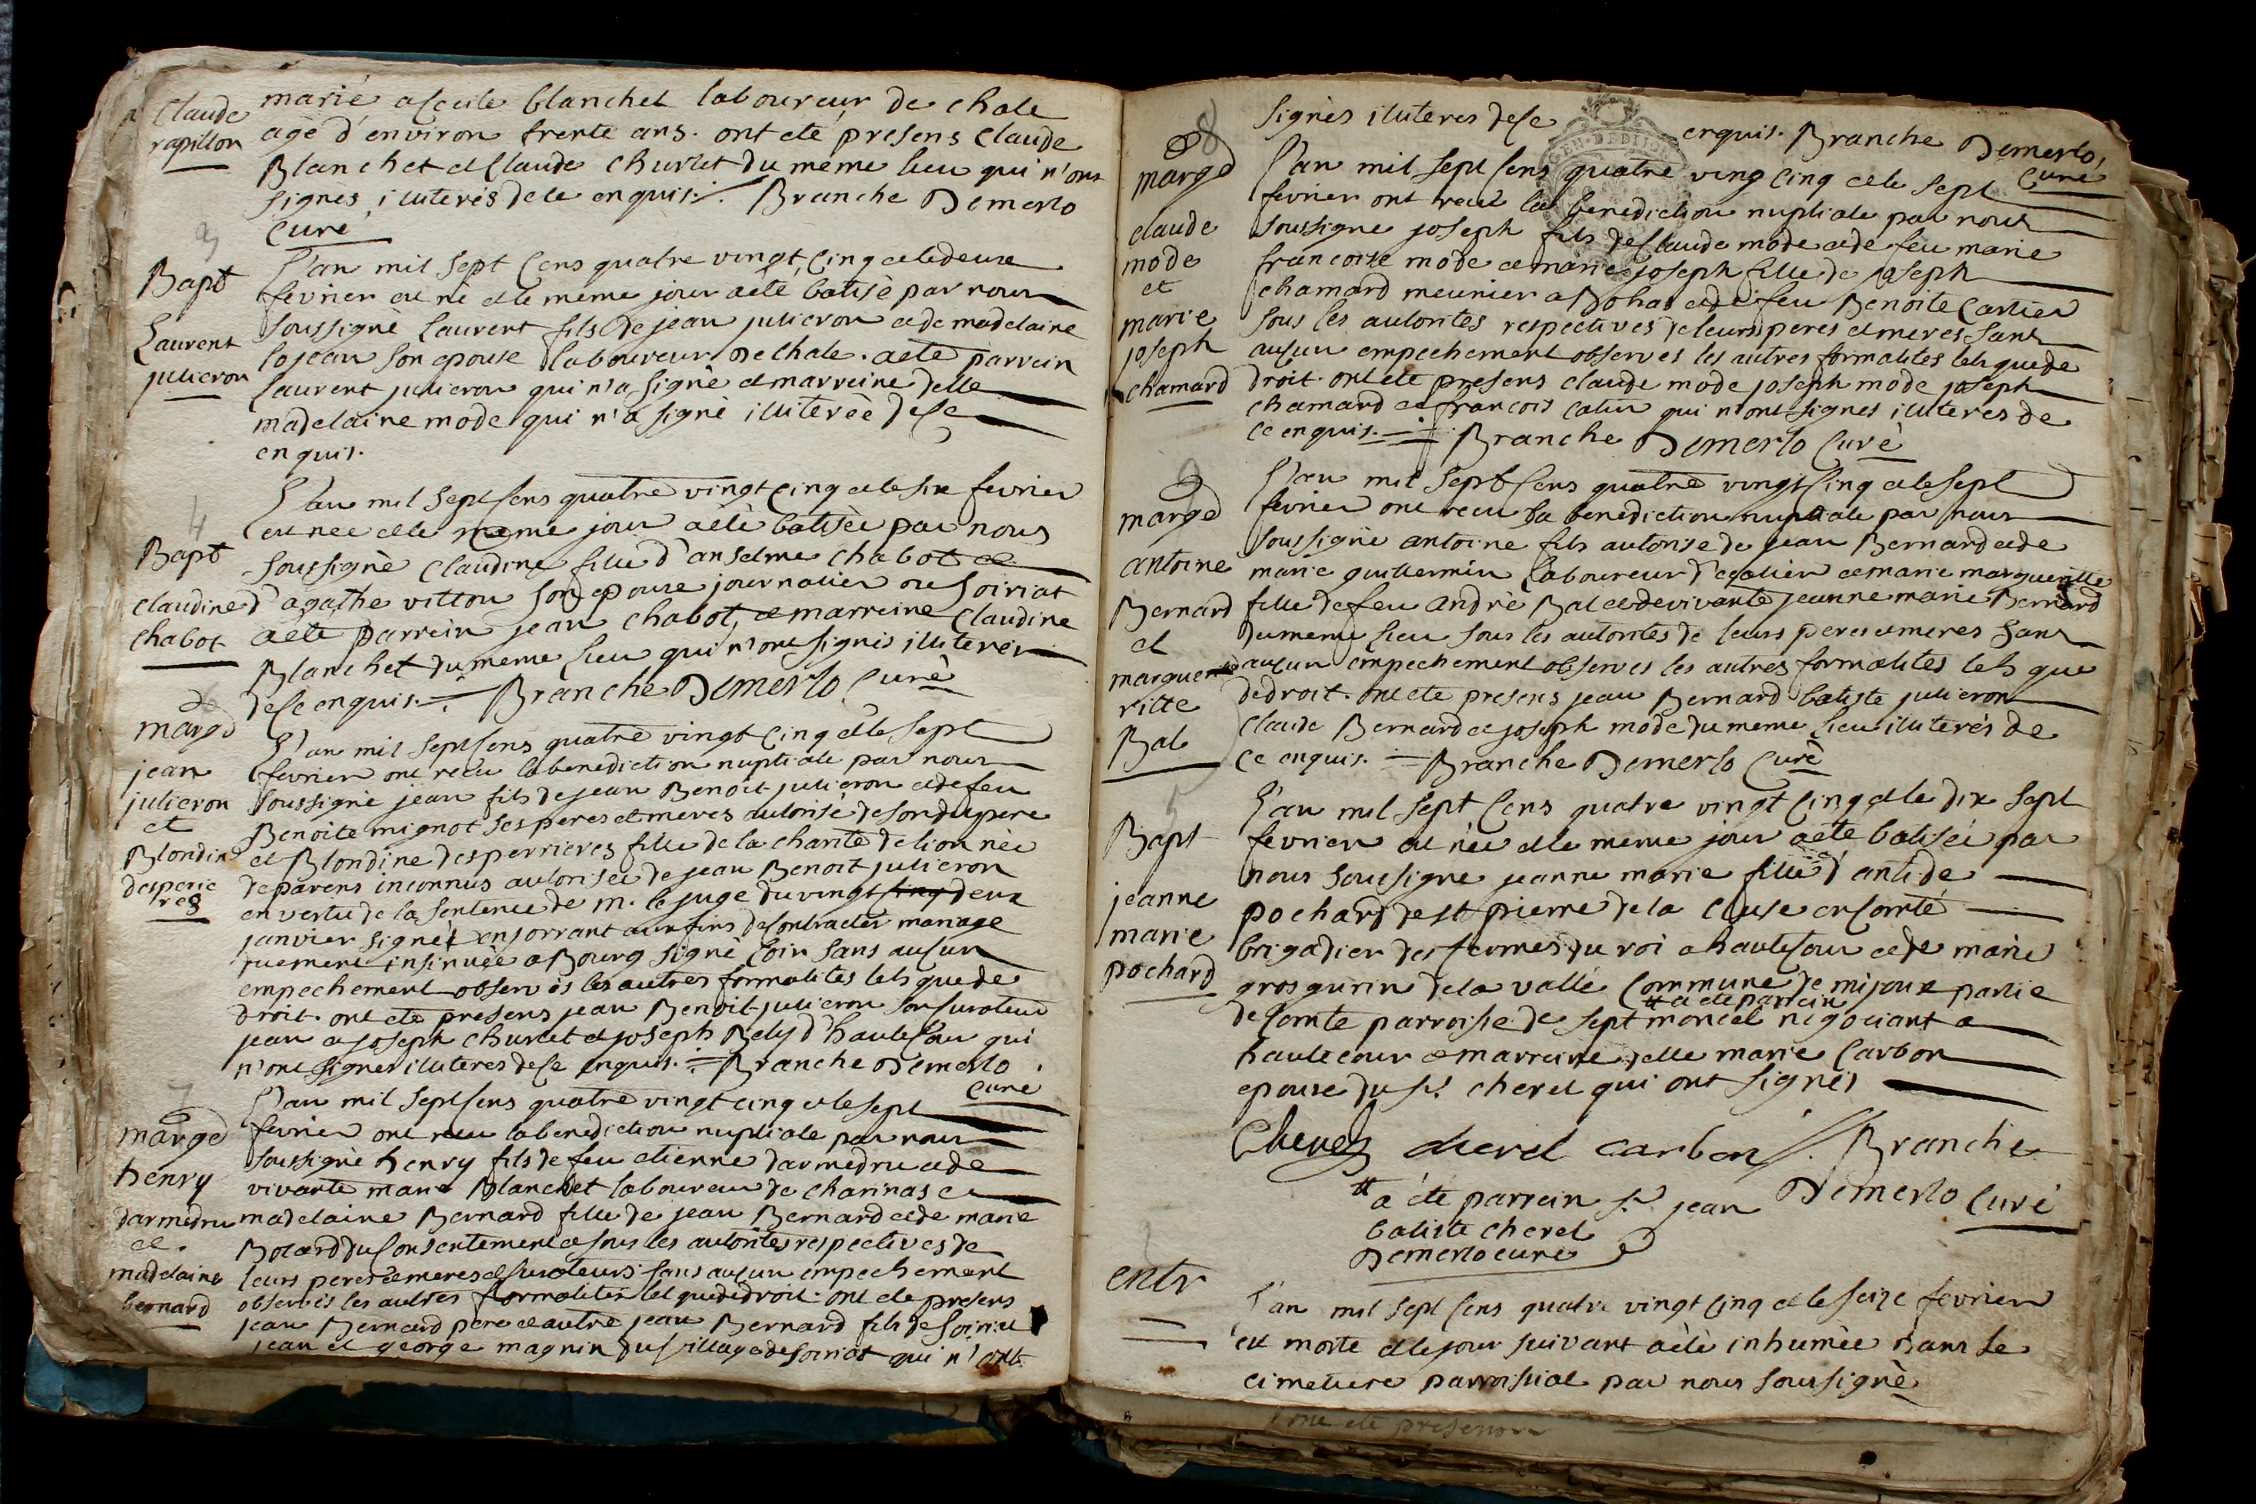 Claude
rapillon
marié a Cecile blanchet laboureur de chale
agé d'environ trente ans. ont eté presens Claude
Blanchet et Claude Churlet du même lieu qui n'ont
signés illiterés de ce enquis. Branche Demerlo
Curé
3
Bapt
Laurent
julieron
L'an mil sept Cens quatre vingt Cinq et le deux
fevrier est né et le meme jour a eté batisé par nous
soussigné Laurent fils de jean julieron et de madelaine
lojean son epouse laboureur de Chale. a eté parrein
laurent julieron qui n'a signé et marreine delle
madelaine mode qui n'a signé illiterée de ce
enquis.
4
Bapt
Claudine
Chabot
L'an mil sept Cens quatre vingt Cinq et le six fevrier
est née et le meme jour a eté batisée par nous
soussigné Claudine fille d'anselme Chabot et
d'agathe vitton son epouse journalier de Soiriat
a eté parrein jean Chabot, et marreine Claudine
Blanchet du meme lieu qui n'ont signés illiterés
de ce enquis. Branche Demerlo Curé
6
marge
jean
julieron
et
Blondine
desperie
res
L'an mil sept Cens quatre vingt Cinq et le sept
fevrier ont recu la benediction nuptiale par nous
soussigné jean fils de jean Benoit julieron et de feu
Benoite mignot ses peres et meres autorisé de son du pere
et Blondine desperrieres fille de la charité de lion née
de parens inconnus autorisée de jean Benoit julieron
en vertu de la sentence de m. le juge du vingt cinq deux
janvier signé aux fins de Contracter mariage
insinuée a Bourg signé loin sans aucun
empechement observés les autres formalités tels que de
droit. ont eté presens jean Benoit julieron son Curateur
jean et joseph Churlet et joseph Bely d'hautecour qui
n'ont signés illiterés de ce enquis. Branche Demerlo
Curé
7
marge
henry
darmedru
et
madelaine
bernard
L'an mil sept Cens quatre vingt Cinq et le sept
fevrier ont recu la benediction nuptiale par nous
soussigné henry fils de feu etienne darmedru et de
vivante marie Blanchet laboureur de Charinas et
madelaine Bernard fille de jean Bernard et de marie
Bolard du Consentement et sous les autorités respectives de
leurs peres et meres et Curateurs sans aucun empechement
observés les autres formalités tel que de droit. ont eté presens
jean Bernard pere et autre jean Bernard fils de Soiriat
jean et george magnin du village de Soiriat qui n'ont
signés illiterés de ce enquis. Branche Demerlo,
Curé
8
marge
claude
mode
et
marie
joseph
chamard
L'an mil sept Cens quatre ving Cinq et le sept
fevrier ont recu la benediction nuptiale par nous
soussigné joseph fils de Claude mode et de feu marie
francoise mode et marie joseph fille de joseph
chamard meunier a Bohas et de feu Benoite Cartier
sous les autorités respectives de leurs peres et meres sans
aucun empechement observés les autres formalités tels que de
droit. ont eté presens claude mode joseph mode joseph
chamard et francois Catin qui n'ont signés illiterés de
ce enquis. Branche Demerlo Curé
9
marge
antoine
Bernard
et
marguer
ritte
Bal
L'an mil sept Cens quatre vingt Cinq et le sept
fevrier ont recu la benediction nuptiale par nous
soussigné antoine fils autorisé de jean Bernard et de
marie guillermin laboureur d'egalier et marie margueritte
fille de feu André Bal et de vivante jeanne marie Bernard
du meme lieu sous les autorités de leurs peres et meres sans
aucun empechement observés les autres formalités tels que
de droit. ont eté presens jean Bernard batiste julieron
Claude Bernard et joseph mode du meme lieu illiterés de
ce enquis. Branche Demerlo Curé
5
Bapt
jeanne
marie
pochard
L'an mil sept Cens quatre vingt Cinq et le dix sept
fevrier est née et le meme jour a eté batisée par
nous soussigné jeanne marie fille d'antide
pochard de st pierre de la Cluse en Comté
brigadier des fermes du roi a hautecour et de marie
grosgurin de la vallé Commune de mijoux partie
de Comté parroisse de sept moncel # a eté parrein negociant a
hautecour et marreine delle marie Carbon
epouse du sr. cherel qui ont signés
Cherel cherel carbon Branche
Demerlo Curé
# a eté parrein sr jean
batiste cherel
Demerlo curé
2
entr
L'an mil sept Cens quatre vingt Cinq et le seize fevrier
est morte et le jour suivant a eté inhumée dans le
cimetiere parroissial par nous soussigné
ont eté presens